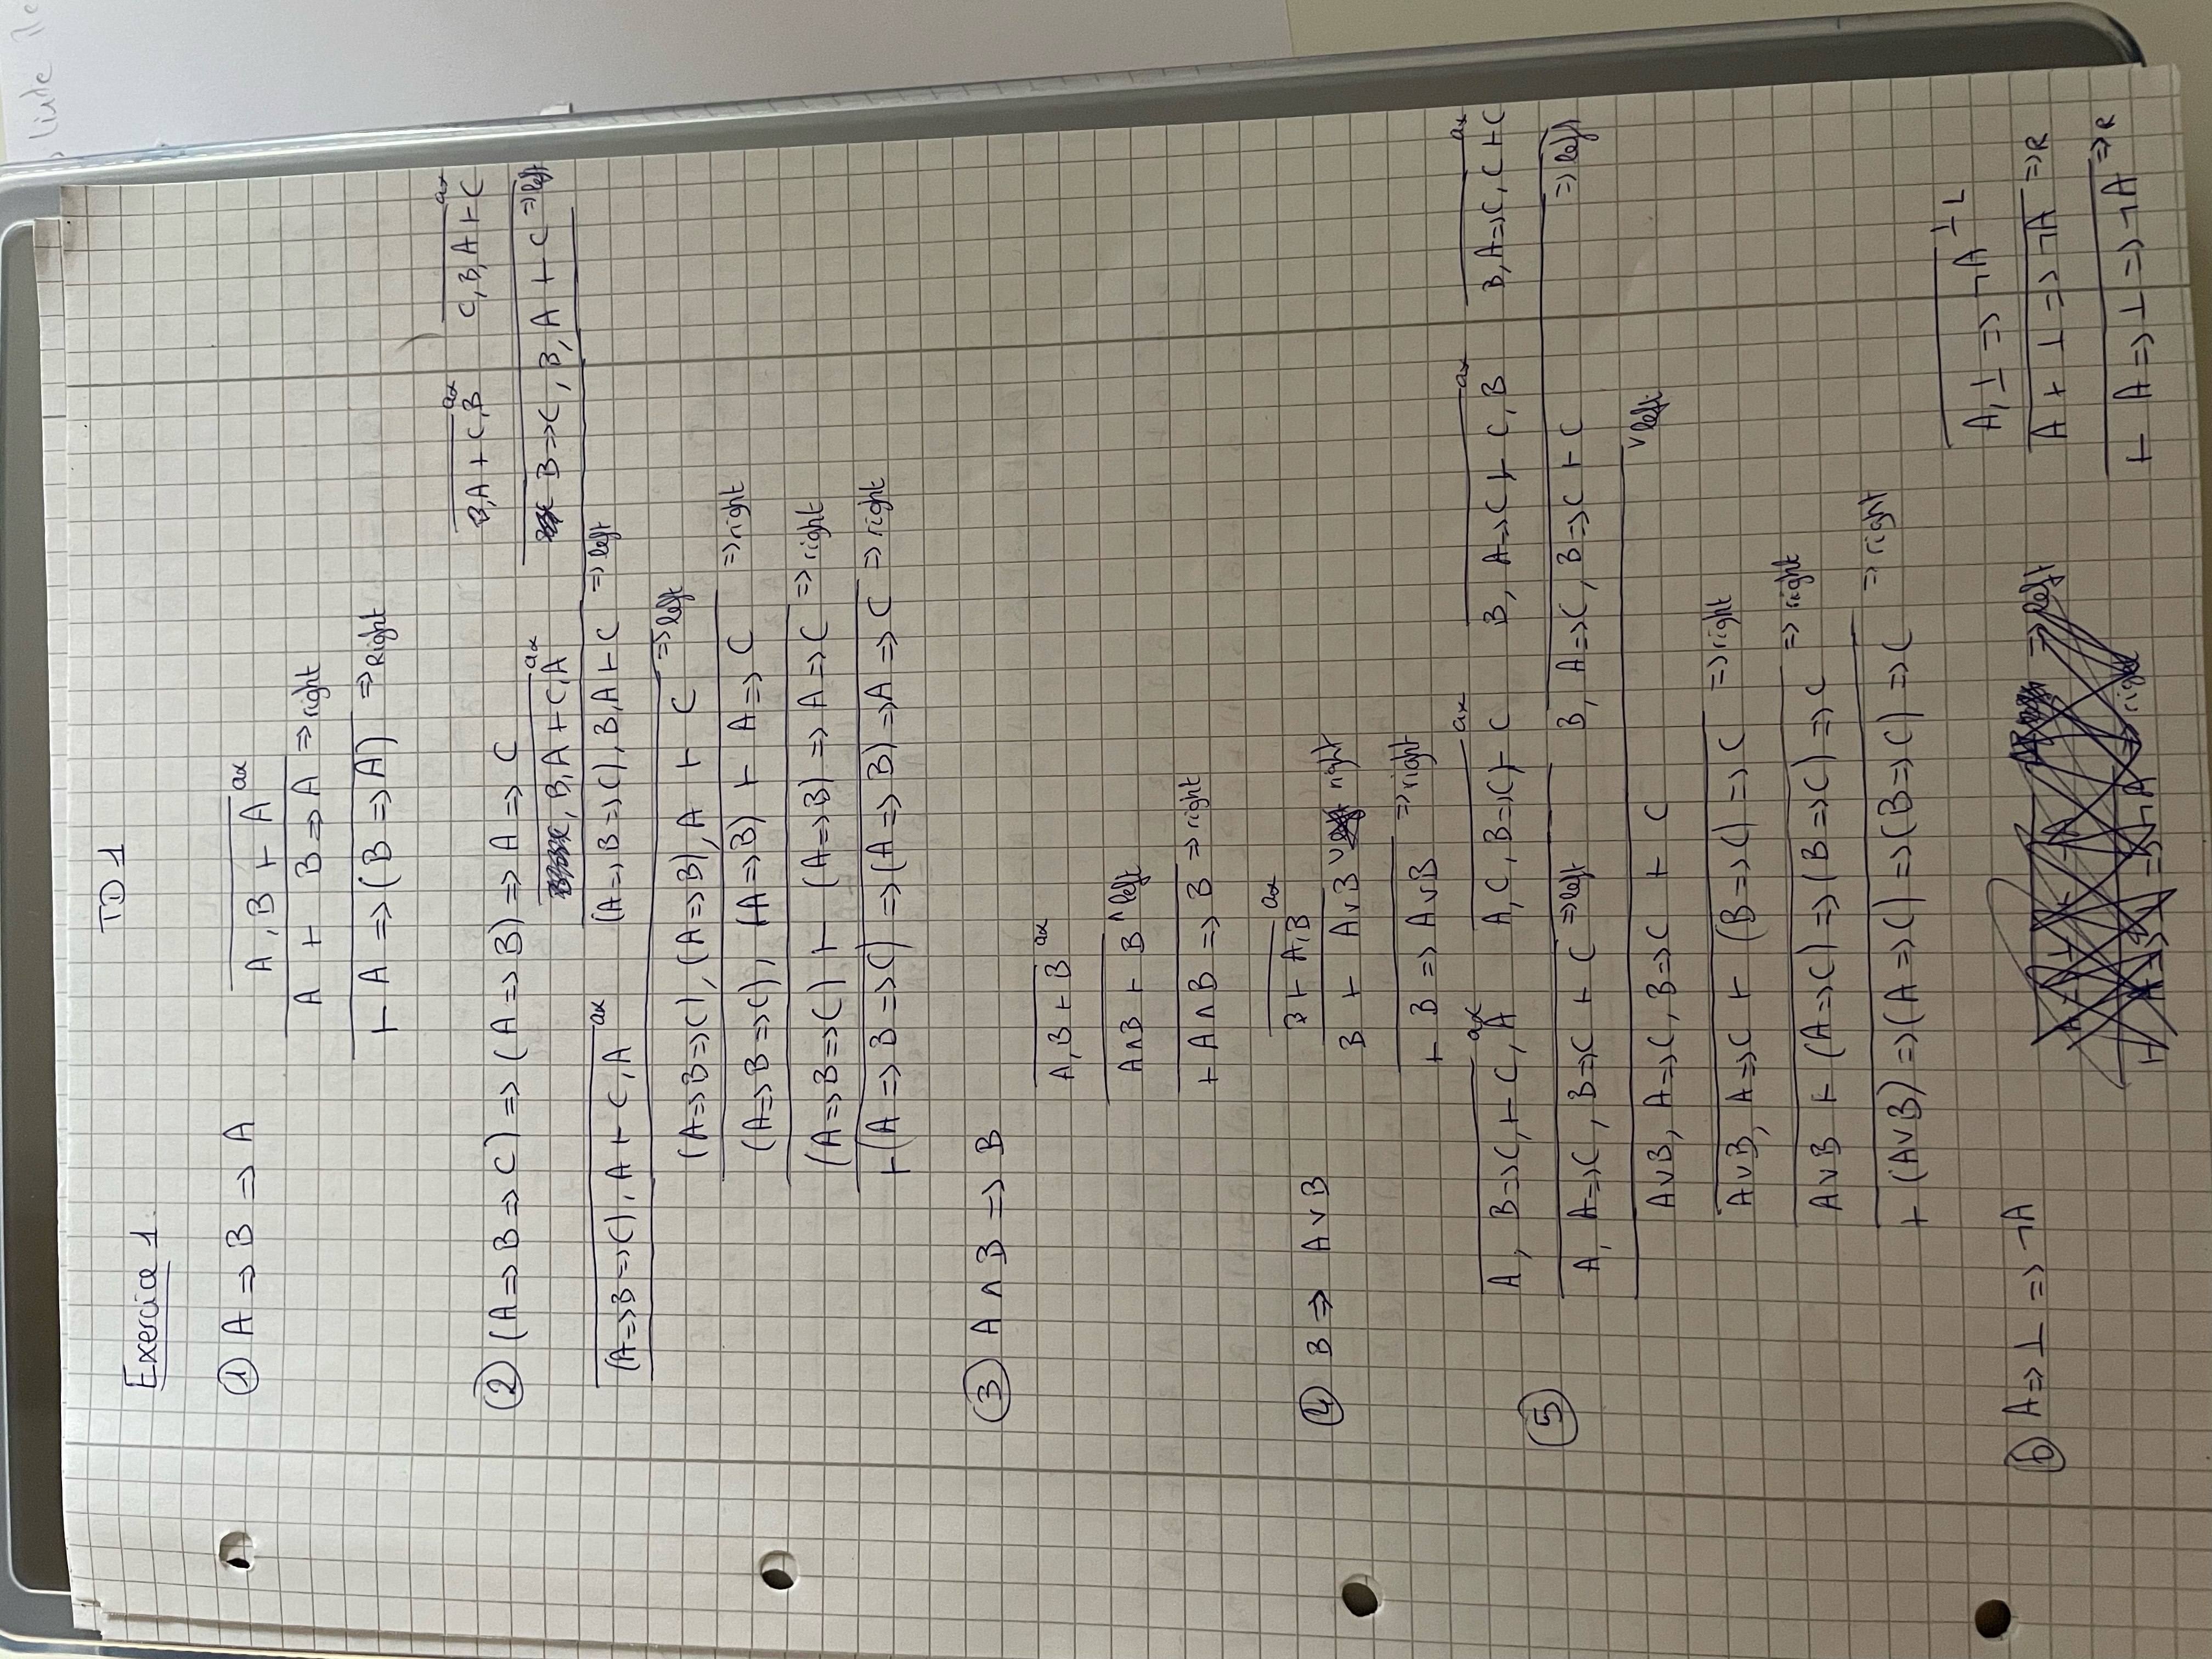 TD 1
Exercice 1.
① A => B => A
A, B ⊢ A ax
A ⊢ B => A => right
⊢ A => (B => A) => Right
② (A => B => C) => (A => B) => A => C
B,A ⊢ C,B ax C,B,A ⊢ C ax
, B,A ⊢ C,A ax B => C, B, A ⊢ C => left
(A => B => C), A ⊢ C, A ax (A => B => C), B,A ⊢ C => left
(A => B => C), (A => B), A ⊢ C => left
(A => B => C), (A => B) ⊢ A => C => right
(A => B => C) ⊢ (A => B) => A => C => right
⊢ (A => B => C) => (A => B) => A => C => right
③ A ∧ B => B
A, B ⊢ B ax
A∧B ⊢ B ∧ left
⊢ A ∧ B => B => right
④ B => A ∨ B
B ⊢ A,B ax
B ⊢ A∨B ∨ right
⊢ B => A∨B => right
⑤
A, B=>C, ⊢ C, A ax A, C, B=>C ⊢ C ax B, A=>C ⊢ C, B ax B, A=>C, C ⊢ C ax
A, A=>C, B=>C ⊢ C => left B, A=>C, B=>C ⊢ C => left
A∨B, A=>C, B=>C ⊢ C ∨ left
A∨B, A=>C ⊢ (B=>C) => C => right
A∨B ⊢ (A=>C) => (B=>C) => C => right
⊢ (A∨B) => (A=>C) => (B=>C) => C => right
⑥ A => ⊥ => ¬A
A, ⊥ => ¬A ⊥ L
A ⊢ ⊥ => ¬A => R
⊢ A => ⊥ => ¬A => R